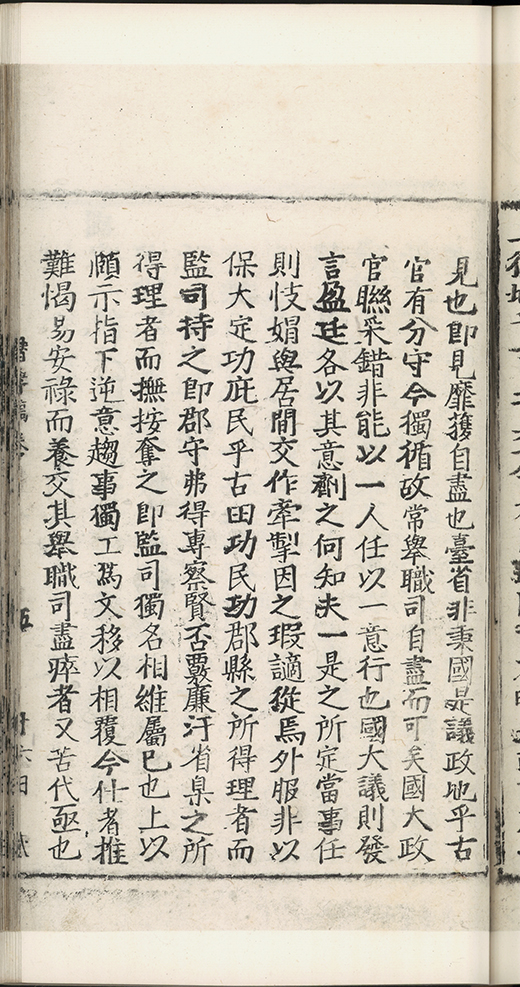 見也即見靡獲自盡也臺省非秉國是議政地乎古
官有分守今獨循故常舉職司自盡而可矣國大政
官聮采錯非能以一人任以一意行也國大議則發
言盈廷各以其意劑之何知夫一是之所定當事任
則忮娟與居間交作牽掣因之瑕謫從焉外服非以
保大定功庇民乎古田功民功郡縣之所得理者而
監司持之即郡守弗得專察賢否覈廉汙省臬之所
得理者而撫按奪之即監司獨名相維屬已也上以
頤示指下逆意趨事獨工爲文移以相覆今仕者推
難愒易安祿而養交其舉職司盡瘁者又苦代亟也